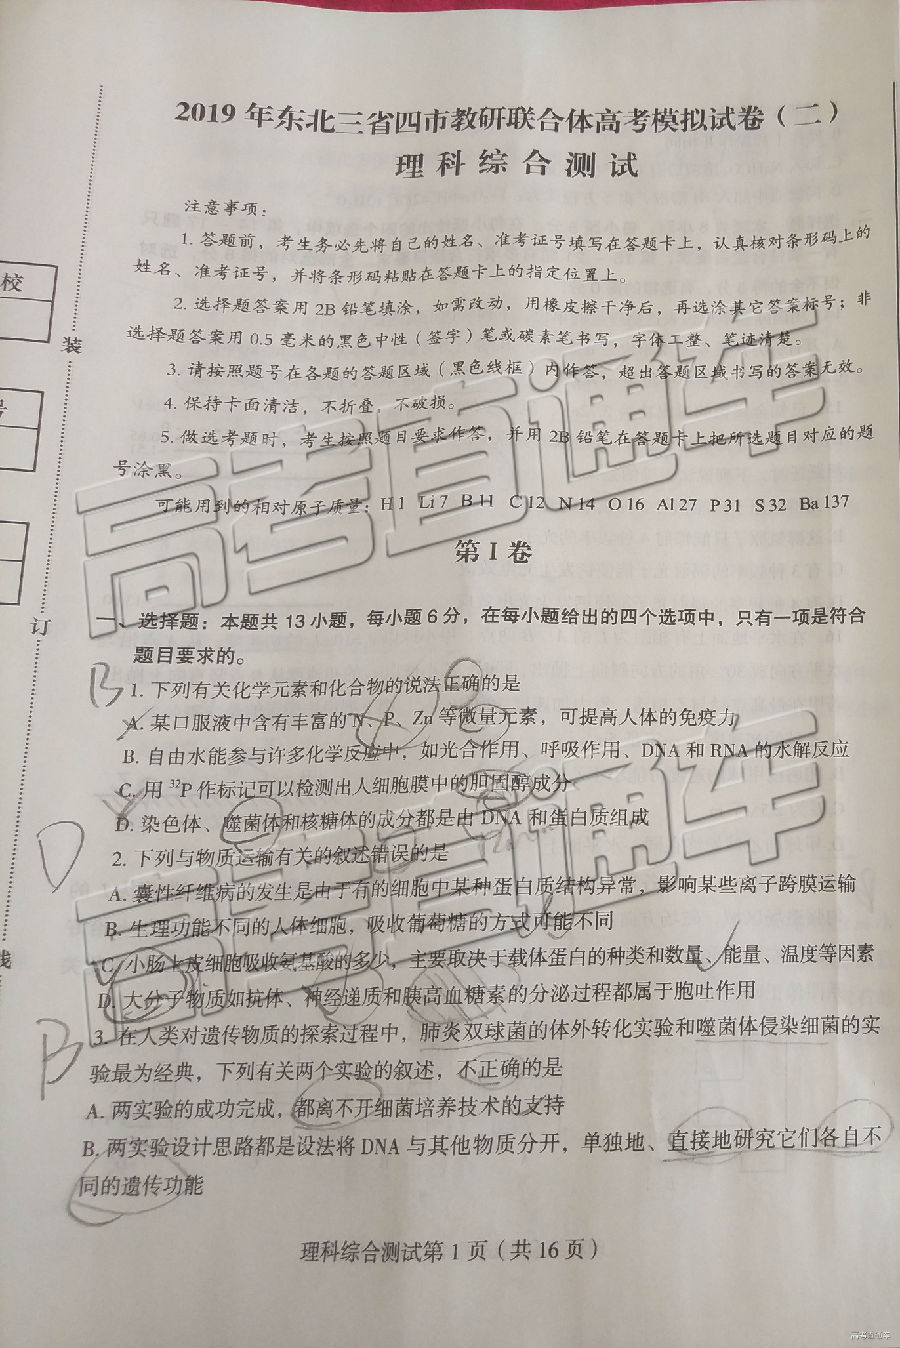 2019 年东北三省四市教研联合体高考模拟试卷（二）
理科综合测试
注意事项：
1. 答题前，考生务必先将自己的姓名、准考证号填写在答题卡上，认真核对条形码上的
姓名、准考证号，并将条形码粘贴在答题卡上的指定位置上。
2. 选择题答案用 2B 铅笔填涂，如需改动，用橡皮擦干净后，再选涂其它答案标号；非
选择题答案用 0.5 毫米的黑色中性（签字）笔或碳素笔书写，字体工整、笔迹清楚。
3. 请按照题号在各题的答题区域（黑色线框）内作答，超出答题区域书写的答案无效。
4. 保持卡面清洁，不折叠，不破损。
5. 做选考题时，考生按照题目要求作答，并用 2B 铅笔在答题卡上把所选题目对应的题
号涂黑。
可能用到的相对原子质量：H 1 Li 7 B 11 C 12 N 14 O 16 Al 27 P 31 S 32 Ba 137
第 I 卷
一、选择题：本题共 13 小题，每小题 6 分，在每小题给出的四个选项中，只有一项是符合
题目要求的。
B
1. 下列有关化学元素和化合物的说法正确的是
A. 某口服液中含有丰富的 N、P、Zn 等微量元素，可提高人体的免疫力
B. 自由水能参与许多化学反应中，如光合作用、呼吸作用、DNA 和 RNA 的水解反应
C. 用 ³²P 作标记可以检测出人细胞膜中的胆固醇成分
D. 染色体、噬菌体和核糖体的成分都是由 DNA 和蛋白质组成
D
2. 下列与物质运输有关的叙述错误的是
A. 囊性纤维病的发生是由于有的细胞中某种蛋白质结构异常，影响某些离子跨膜运输
B. 生理功能不同的人体细胞，吸收葡萄糖的方式可能不同
C. 小肠上皮细胞吸收氨基酸的多少，主要取决于载体蛋白的种类和数量、能量、温度等因素
D. 大分子物质如抗体、神经递质和胰高血糖素的分泌过程都属于胞吐作用
B
3. 在人类对遗传物质的探索过程中，肺炎双球菌的体外转化实验和噬菌体侵染细菌的实
验最为经典，下列有关两个实验的叙述，不正确的是
A. 两实验的成功完成，都离不开细菌培养技术的支持
B. 两实验设计思路都是设法将 DNA 与其他物质分开，单独地、直接地研究它们各自不
同的遗传功能
理科综合测试第 1 页（共 16 页）
校
号
装
订
线
高考直通车
高考直通车
高考直通车